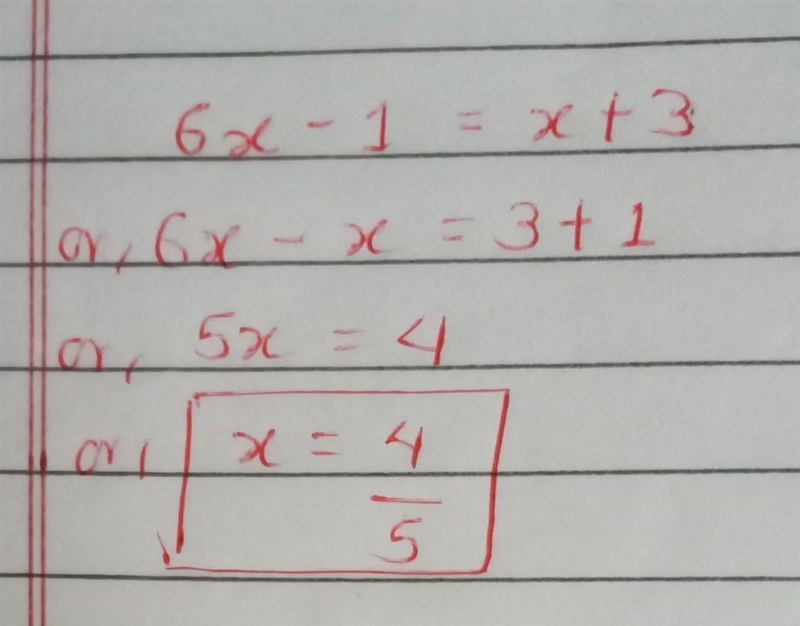 6x - 1 = x + 3
or, 6x - x = 3 + 1
or, 5x = 4
or, x = 4
5